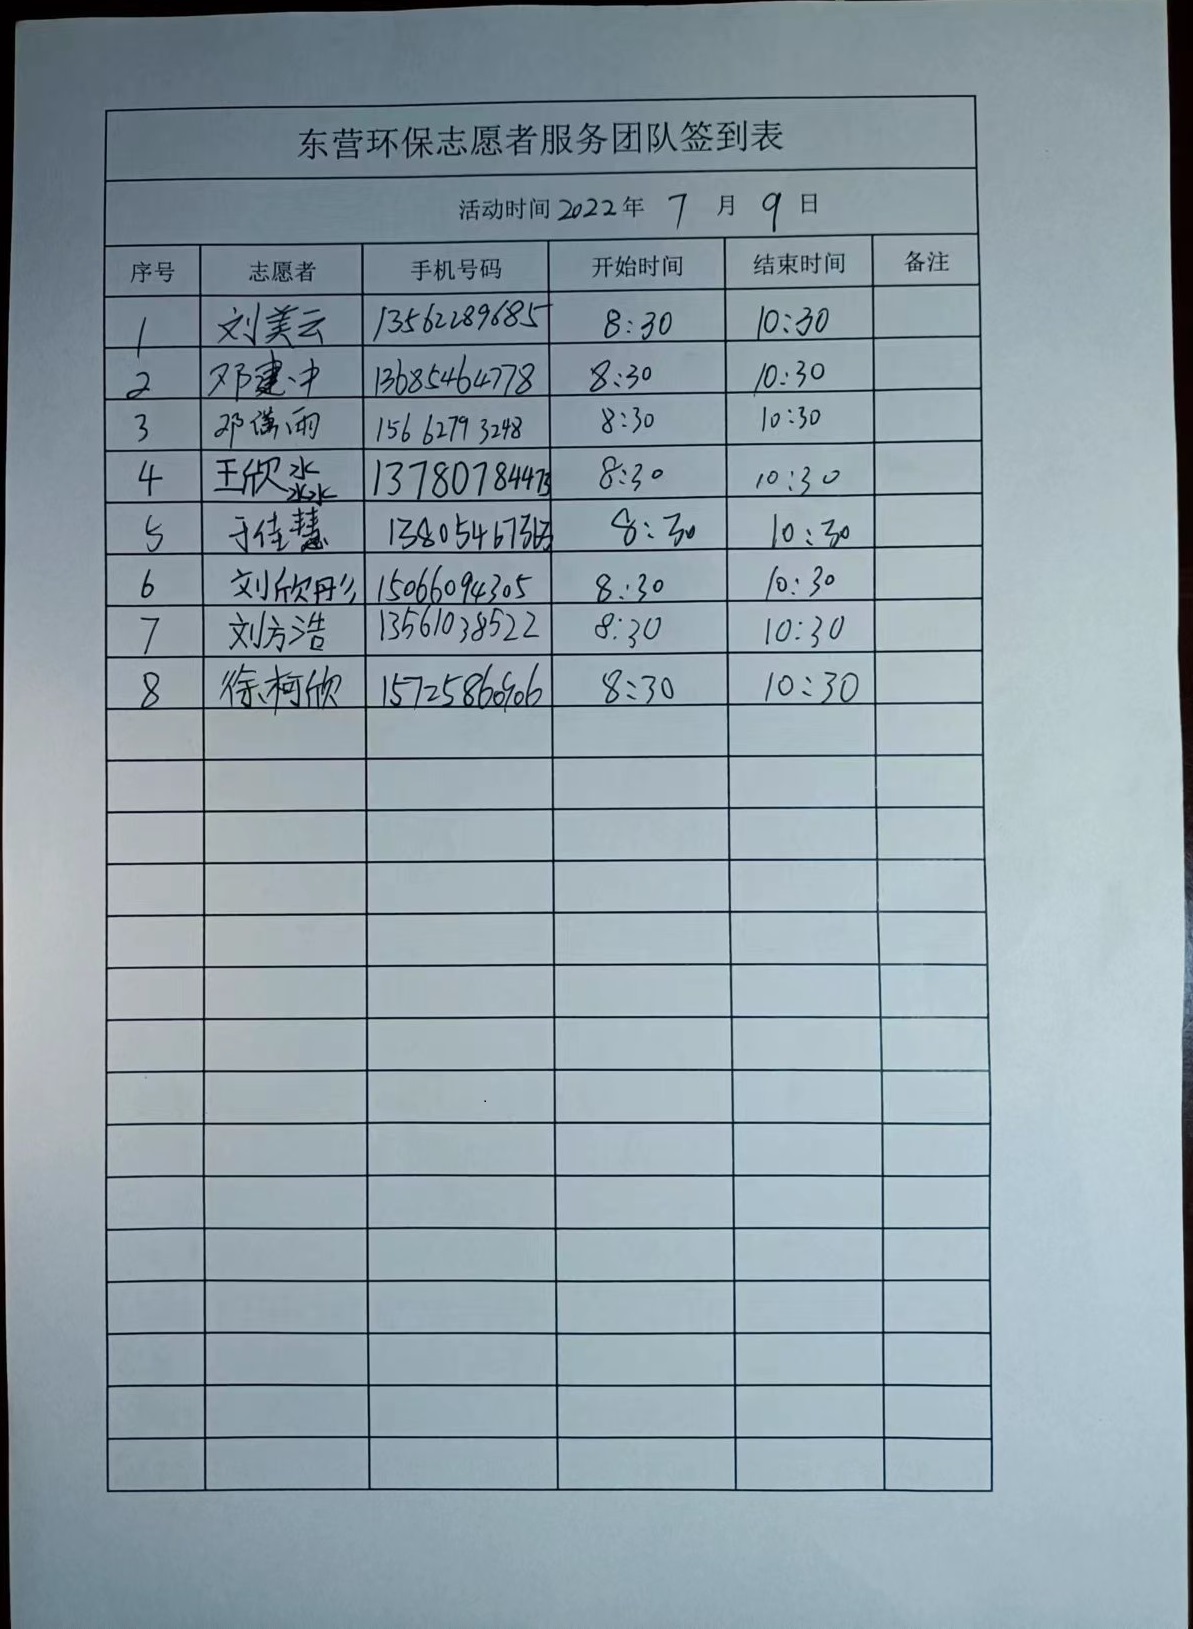 东营环保志愿者服务团队签到表
活动时间 2022年 7 月 9 日
序号 志愿者 手机号码 开始时间 结束时间 备注
1 刘美云 13562289685 8:30 10:30
2 邓建中 13685464778 8:30 10:30
3 邓 雨 15662793248 8:30 10:30
4 王欣淼 13780784473 8:30 10:30
5 于佳慧 8:30 10:30
6 刘欣彤 15066094305 8:30 10:30
7 刘方浩 13561038522 8:30 10:30
8 徐柯欣 8:30 10:30